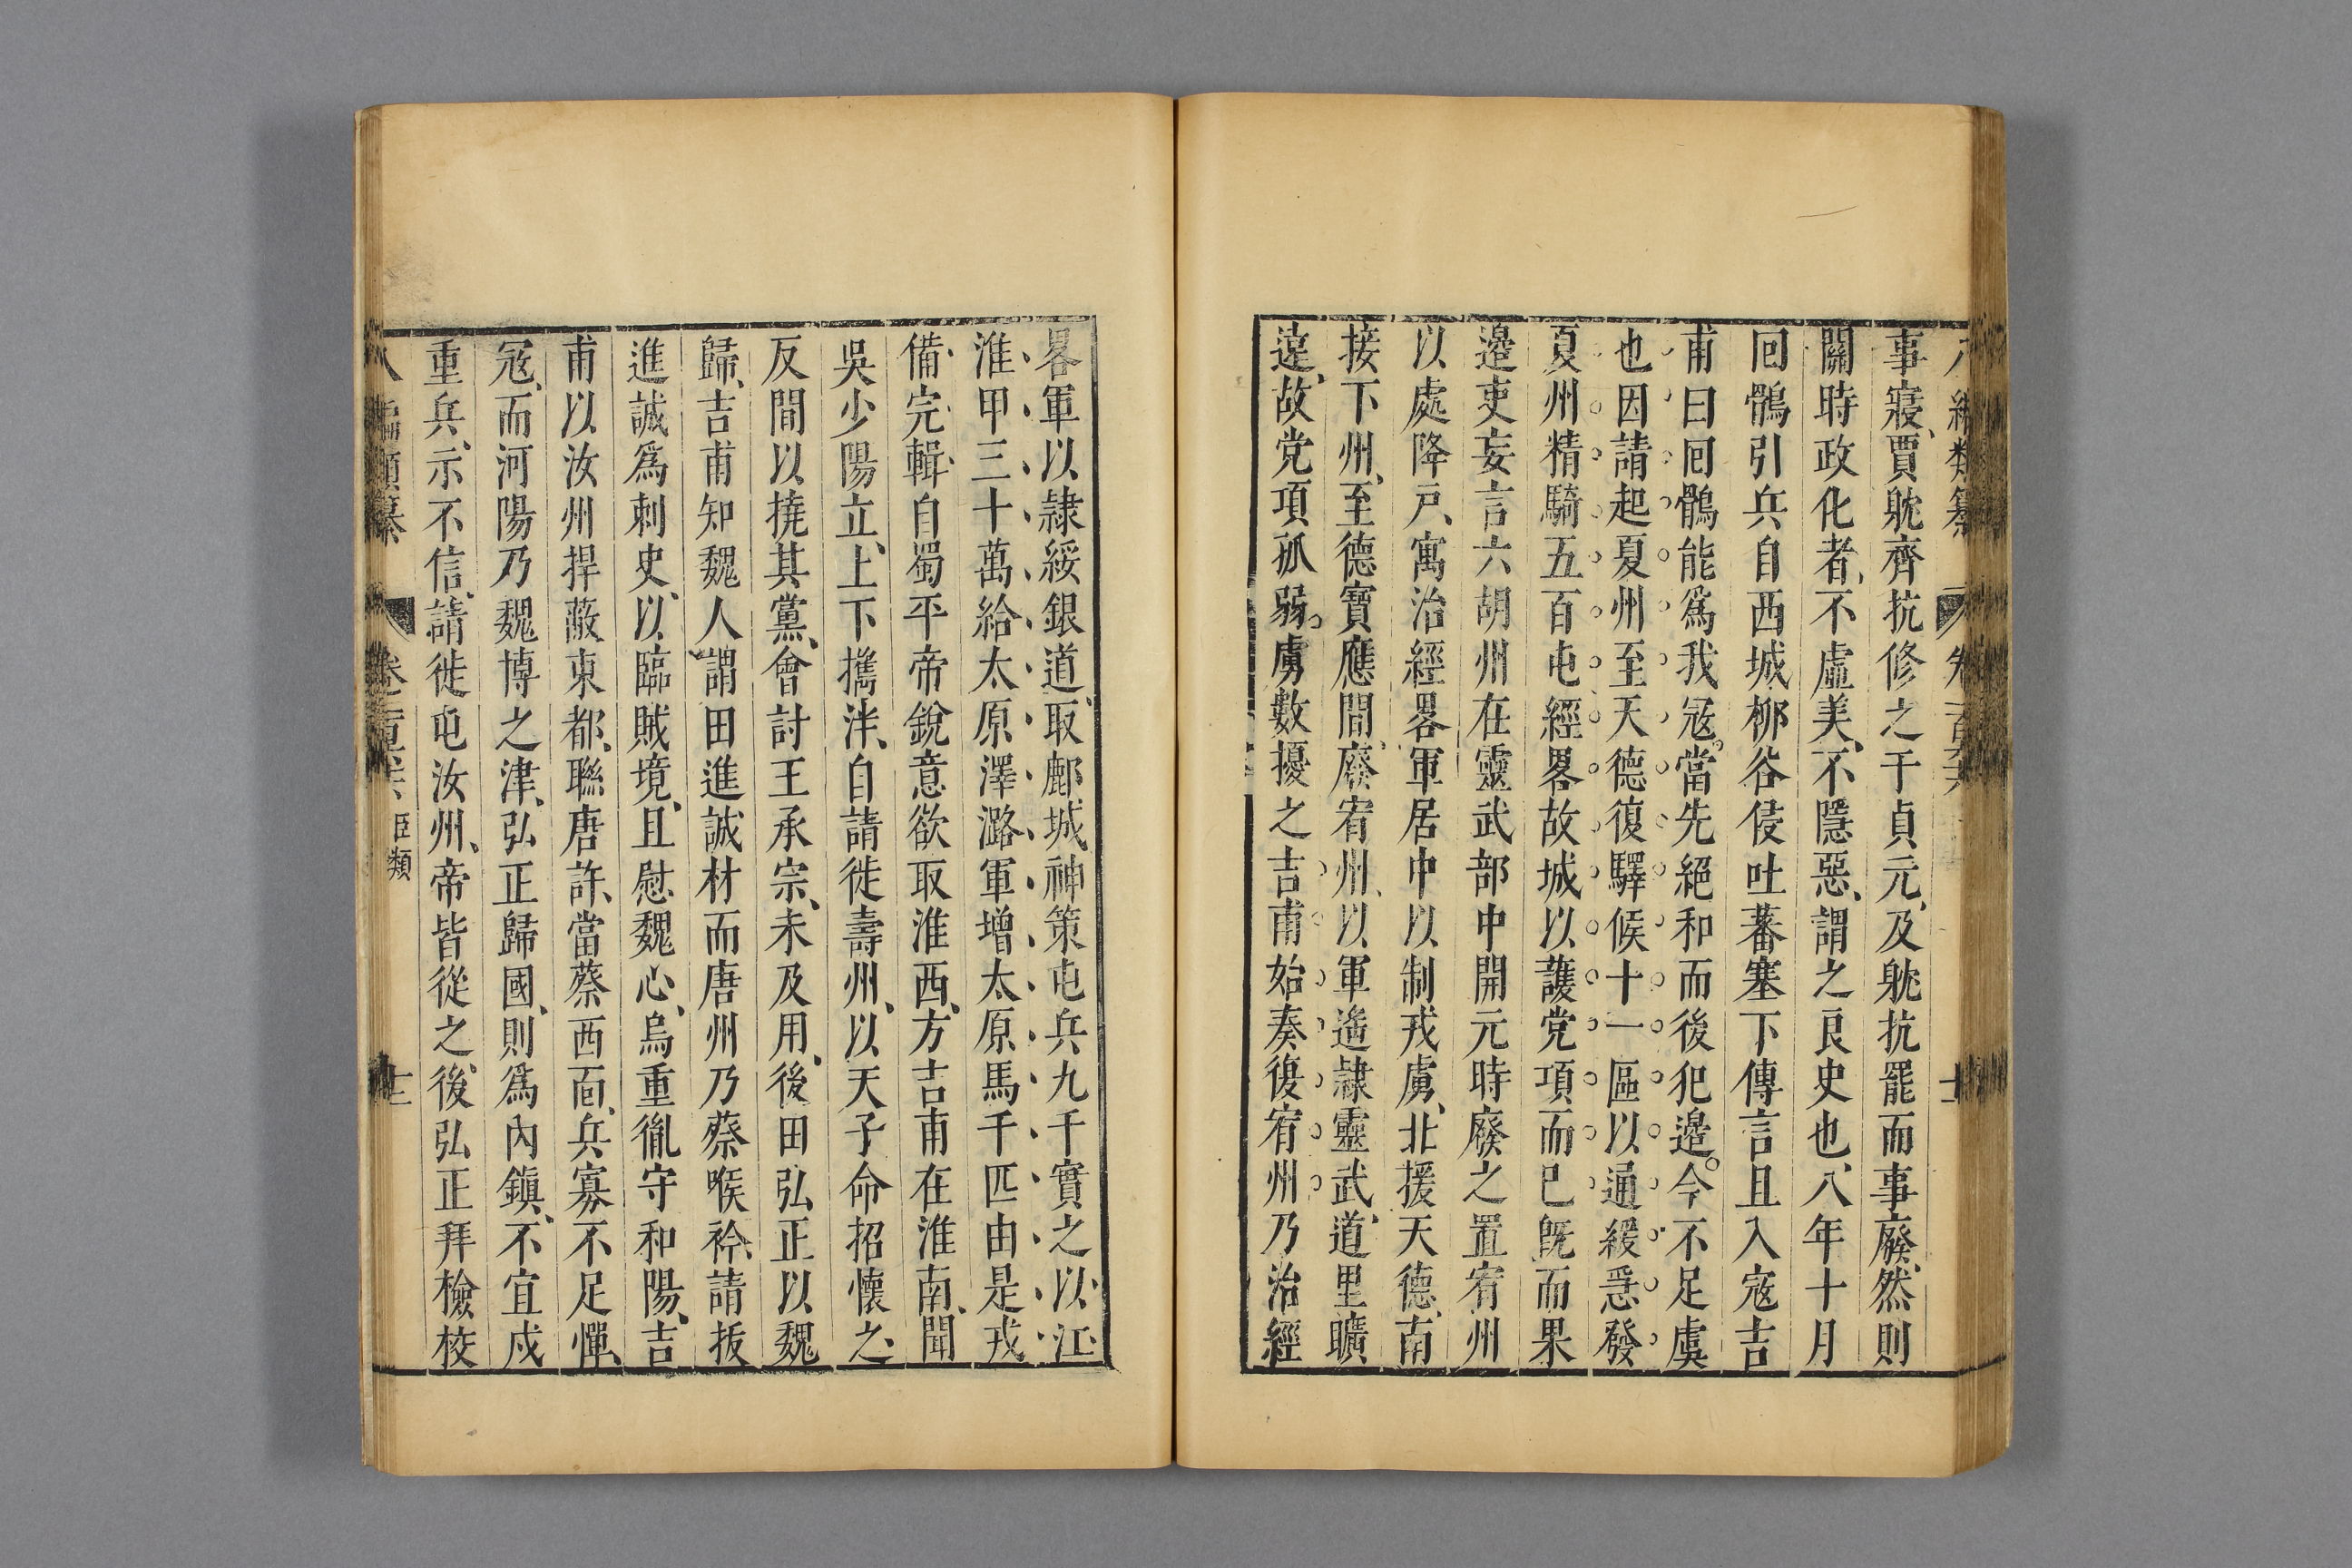 事寢、賈躭齊抗修之于貞元、及躭抗罷而事廢、然則
關時政化者、不虛美、不隱惡、謂之良史也、八年十月
囘鶻引兵自西城柳谷侵吐蕃塞下傳言且入寇吉
甫曰囘鶻能爲我寇。當先絕和而後犯邉。今不足虞
也因請起夏州至天德復驛候十一區以通緩急發
夏州精騎五百屯經畧故城以護党項而已旣而果
邉吏妄言六胡州在靈武部中開元時廢之置宥州
以處降戸、寓治經畧軍居中以制戎虜、北援天德、南
接下州、至德寶應間、廢宥州、以軍遙隷靈武、道里曠
遠、故党項孤弱。虜數擾之吉甫始奏復宥州乃治經
畧軍以隷綏銀道、取鄜城神策屯兵九千實之以江
淮甲三十萬給太原澤潞軍增太原馬千匹由是戎
備完輯自蜀平帝銳意欲取淮西、方吉甫在淮南、聞
吳少陽立、上下攜泮、自請徙壽州、以天子命招懷之、
反間以撓其黨、會討王承宗、未及用、後田弘正以魏
歸、吉甫知魏人謂田進誠材而唐州乃蔡喉衿、請拔
進誠爲刺史、以臨賊境、且慰魏心、烏重胤守和陽、吉
甫以汝州捍蔽東都、聯唐許、當蔡西面、兵寡不足憚、
寇、而河陽乃魏博之津、弘正歸國、則爲內鎭、不宜戍
重兵、示不信、請徙屯汝州、帝皆從之、後弘正拜檢校
八編類纂 卷之一百 臣類 十二